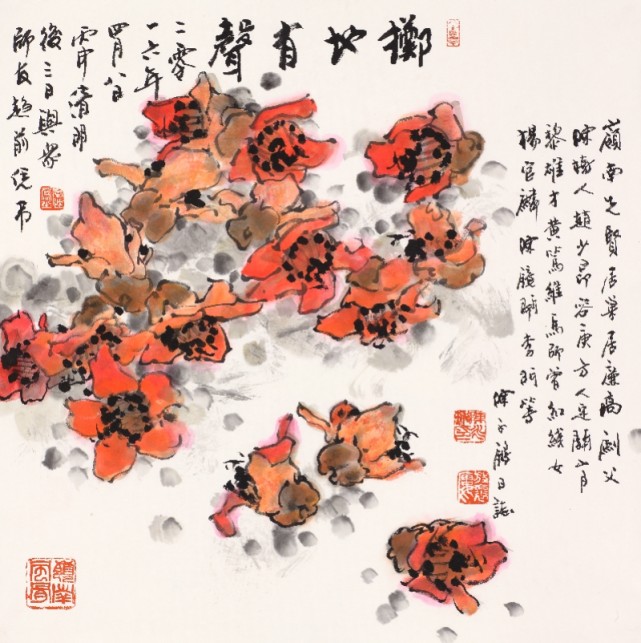 擲地有聲
二零
一六年
四月八日
丙申清明
後三日與眾
師友趨前凭弔
嶺南先賢居巢居廉高劍父
陳樹人趙少昂容庚方人定關山月
黎雄才黃篤維馬師曾紅綫女
楊官麟陳